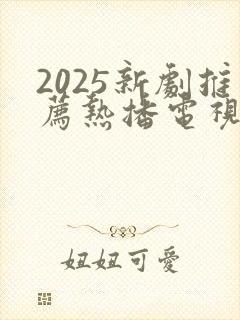 2025新劇推
薦熱播電視
妞妞可愛